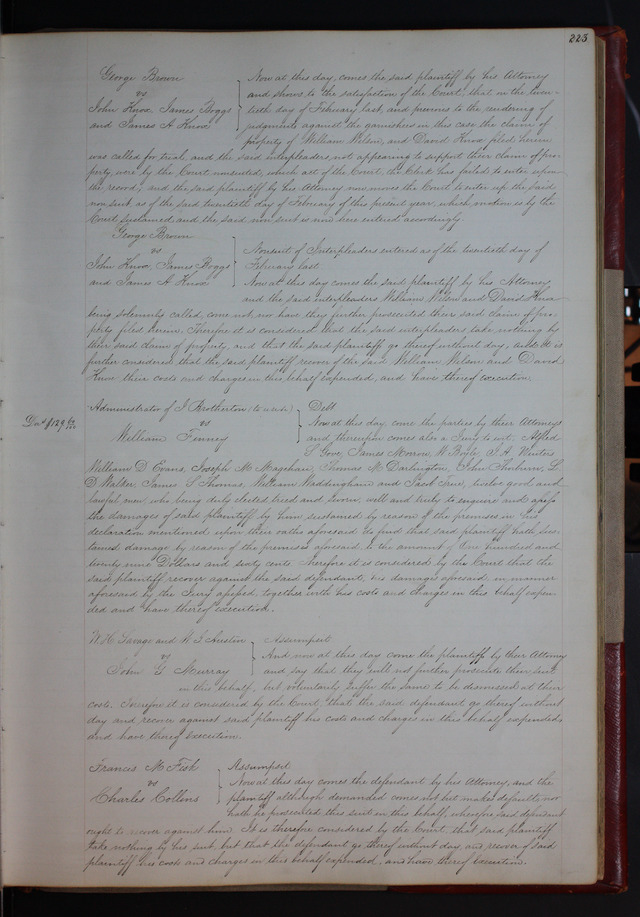 223
George Brown
vs
John Knox, James Boggs
and James A Knox
Now at this day, comes the said plaintiff by his Attorney
and shows to the satisfaction of the Court, that on the twen-
tieth day of February last, and previous to the rendering of
judgment against the garnishees in this case the claims of
property of William Wilson, and David Knox filed herein
was called for trial, and the said interpleaders, not appearing to support their claim of pro-
perty, were by the Court nonsuited, which act of the Court, the Clerk has failed to enter upon
the record, and the said plaintiff by his Attorney now moves the Court to enter up the said
non suit as of the said twentieth day of February of this present year, which motion is by the
Court sustained and the said non suit is now here entered accordingly
George Brown
vs
John Knox, James Boggs
and James A Knox
Nonsuit of Interpleaders entered as of the twentieth day of
February last
Now at this day comes the said plaintiff by his Attorney
and the said interpleaders William Wilson and David Knox
being solemnly called, come not, nor have they further prosecuted their said claim of pro-
perty filed herein. Therefore it is considered that the said interpleaders take nothing by
their said claim of property, and that the said plaintiff go thereof without day, and it is
further considered that the said plaintiff recover of the said William Wilson and David
Knox their costs and charges in this behalf expended, and have thereof execution
Administrator of J Brotherton (to use)
vs
William Finney
Dam $129 60/100
Debt
Now at this day come the parties by their Attorneys
and thereupon comes also a Jury to wit, Alfred
S Gove, James Morrow, W Boyle, J A Winters
William D Evans, Joseph M Magehan, Thomas M Darlington, John L
D Walker, James S Thomas, William Waddingham and Jacob twelve good and
lawful men who being duly elected tried and sworn, well and truly to enquire and assess
the damages of said plaintiff by him sustained by reason of the premises in the
declaration mentioned upon their oaths aforesaid do find that said plaintiff hath sus-
tained damage by reason of the premises aforesaid to the amount of One hundred and
twenty nine Dollars and sixty cents Therefore it is considered by the Court that the
said plaintiff recover against the said defendant, his damages aforesaid in manner
aforesaid by the Jury assessed together with his costs and charges in this behalf expen-
ded and have thereof execution.
W H Savage and W E Austin
vs
John G Murray
Assumpsit
And now at this day come the plaintiffs by their Attorney
and say that they will not further prosecute their suit
in this behalf, but voluntarily suffer the same to be dismissed at their
costs. Therefore it is considered by the Court that the said defendant go thereof without
day and recover against said plaintiff his costs and charges in this behalf expended
and have thereof execution.
Francis M Fish
vs
Charles Collins
Assumpsit
Now at this day comes the defendant by his Attorney, and the
plaintiff although demanded comes not but makes default, nor
hath he prosecuted this suit in this behalf, wherefore said defendant
ought to recover against him It is therefore considered by the Court that said plaintiff
take nothing by his suit but that the defendant go thereof without day and recover of said
plaintiff his costs and charges in this behalf expended, and have thereof execution.